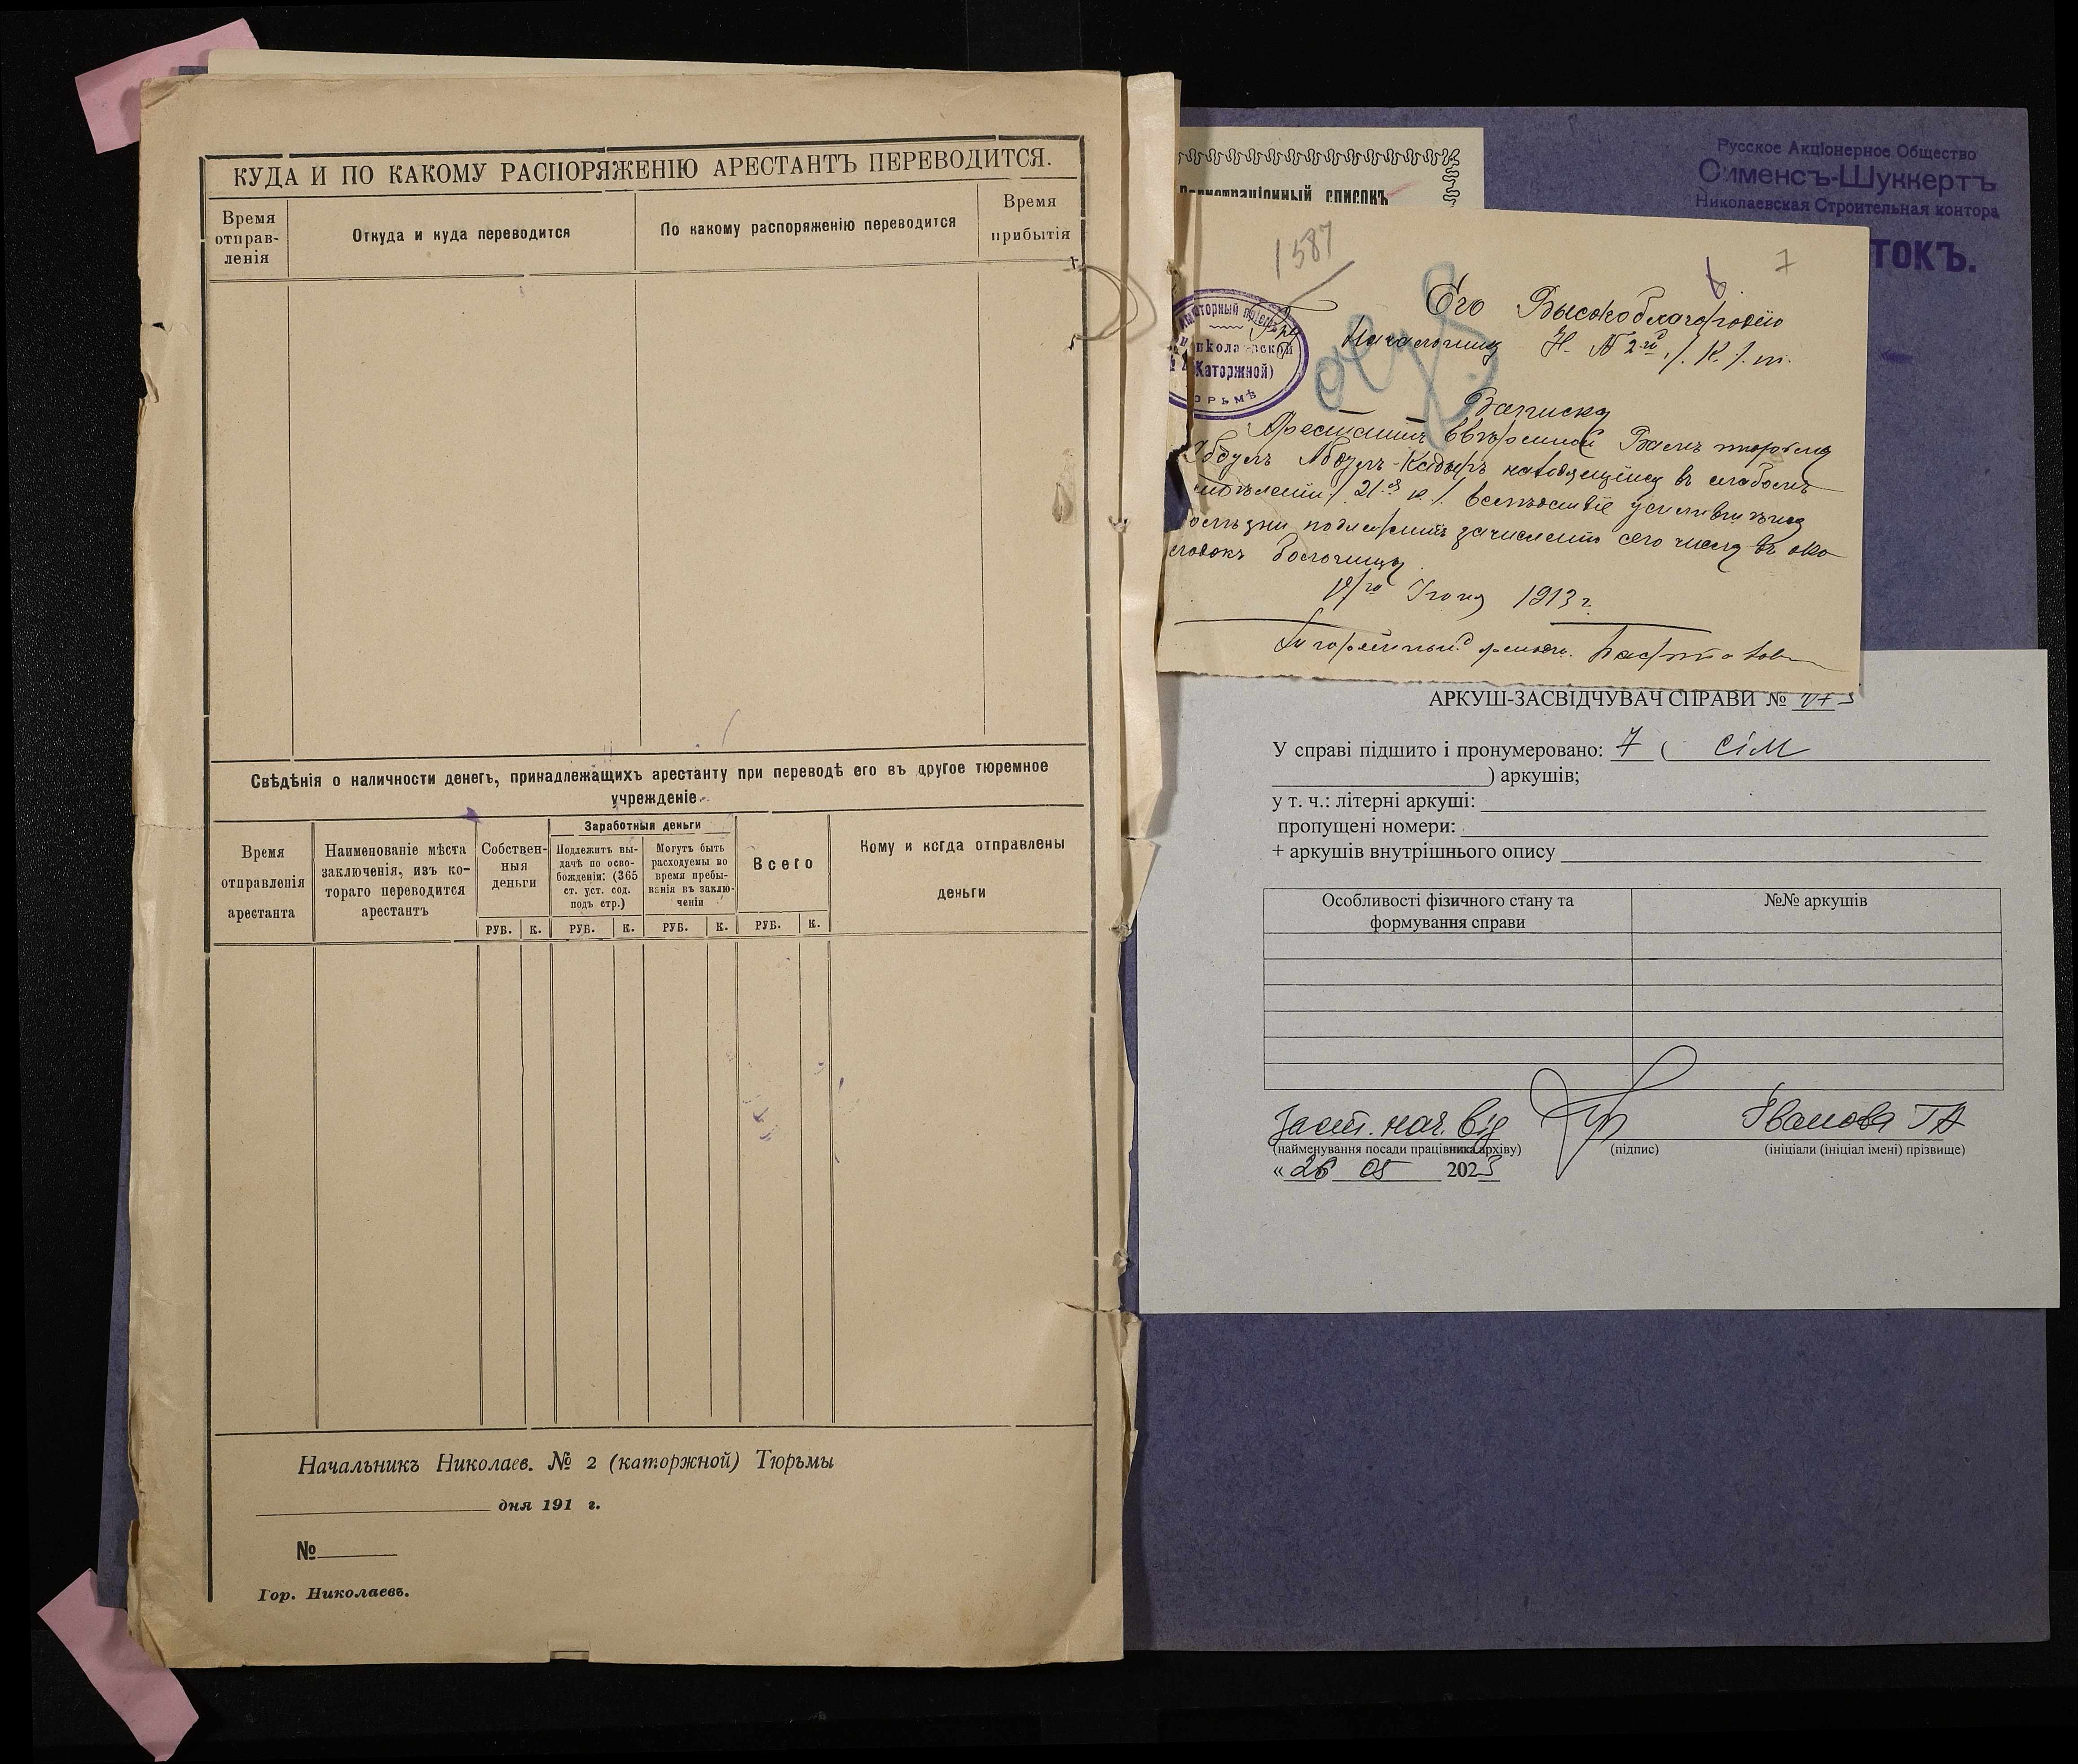 КУДА И ПО КАКОМУ РАСПОРЯЖЕНІЮ АРЕСТАНТЪ ПЕРЕВОДИТСЯ.
Время
отправ-
ленія
Откуда и куда переводится
По какому распоряженію переводится
Время
прибытія
Свѣдѣнія о наличности денегъ, принадлежащихъ арестанту при переводѣ его въ другое тюремное
учрежденіе.
Время
отправленія
арестанта
Наименованіе мѣста
заключенія, изъ ко-
тораго переводится
арестантъ
Собствен-
ныя
деньги
Заработныя деньги
Подлежитъ вы-
дачѣ по осво-
божденіи: (365
ст. уст. сод.
подъ стр.)
Могутъ быть
расходуемы во
время пребы-
ванія въ заклю-
ченіи
Всего
Кому и когда отправлены
деньги
РУБ. К. РУБ. К. РУБ. К. РУБ. К.
Начальникъ Николаев. № 2 (каторжной) Тюрьмы
дня 191 г.
№
Гор. Николаевъ.
Русское Акціонерное Общество
Сименсъ-Шуккертъ
Николаевская Строительная контора
ТОКЪ.
Регистраціонный списокъ
1587
7
Его Высокоблагородію
Начальнику Н. № 2й /.К./.т.
(Каторжной)
Записка
Арестантъ ввѣренной Вамъ тюрьмы
Абдулъ-Кадыръ находящійся въ слабомъ
/.21й к./. вслѣдствіе усилившейся
подлежитъ зачисленію сего числа въ око
лодокъ больницы
Іюня 1913 г.
АРКУШ-ЗАСВІДЧУВАЧ СПРАВИ №
У справі підшито і пронумеровано: 7 ( сім
) аркушів;
у т. ч.: літерні аркуші:
пропущені номери:
+ аркушів внутрішнього опису
Особливості фізичного стану та
формування справи
№№ аркушів
Заст. нач. від
Іванова ТА
(найменування посади працівника архіву)
(підпис)
(ініціали (ініціал імені) прізвище)
« 26 05 2023